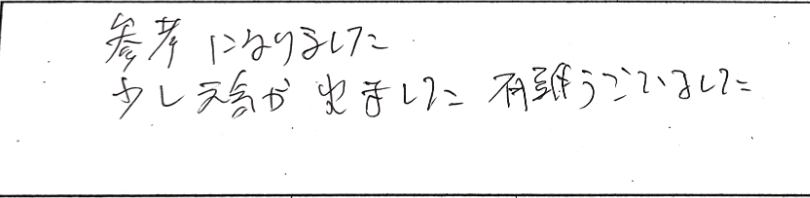 参考になりました
少し元気が出ました 有難うございました